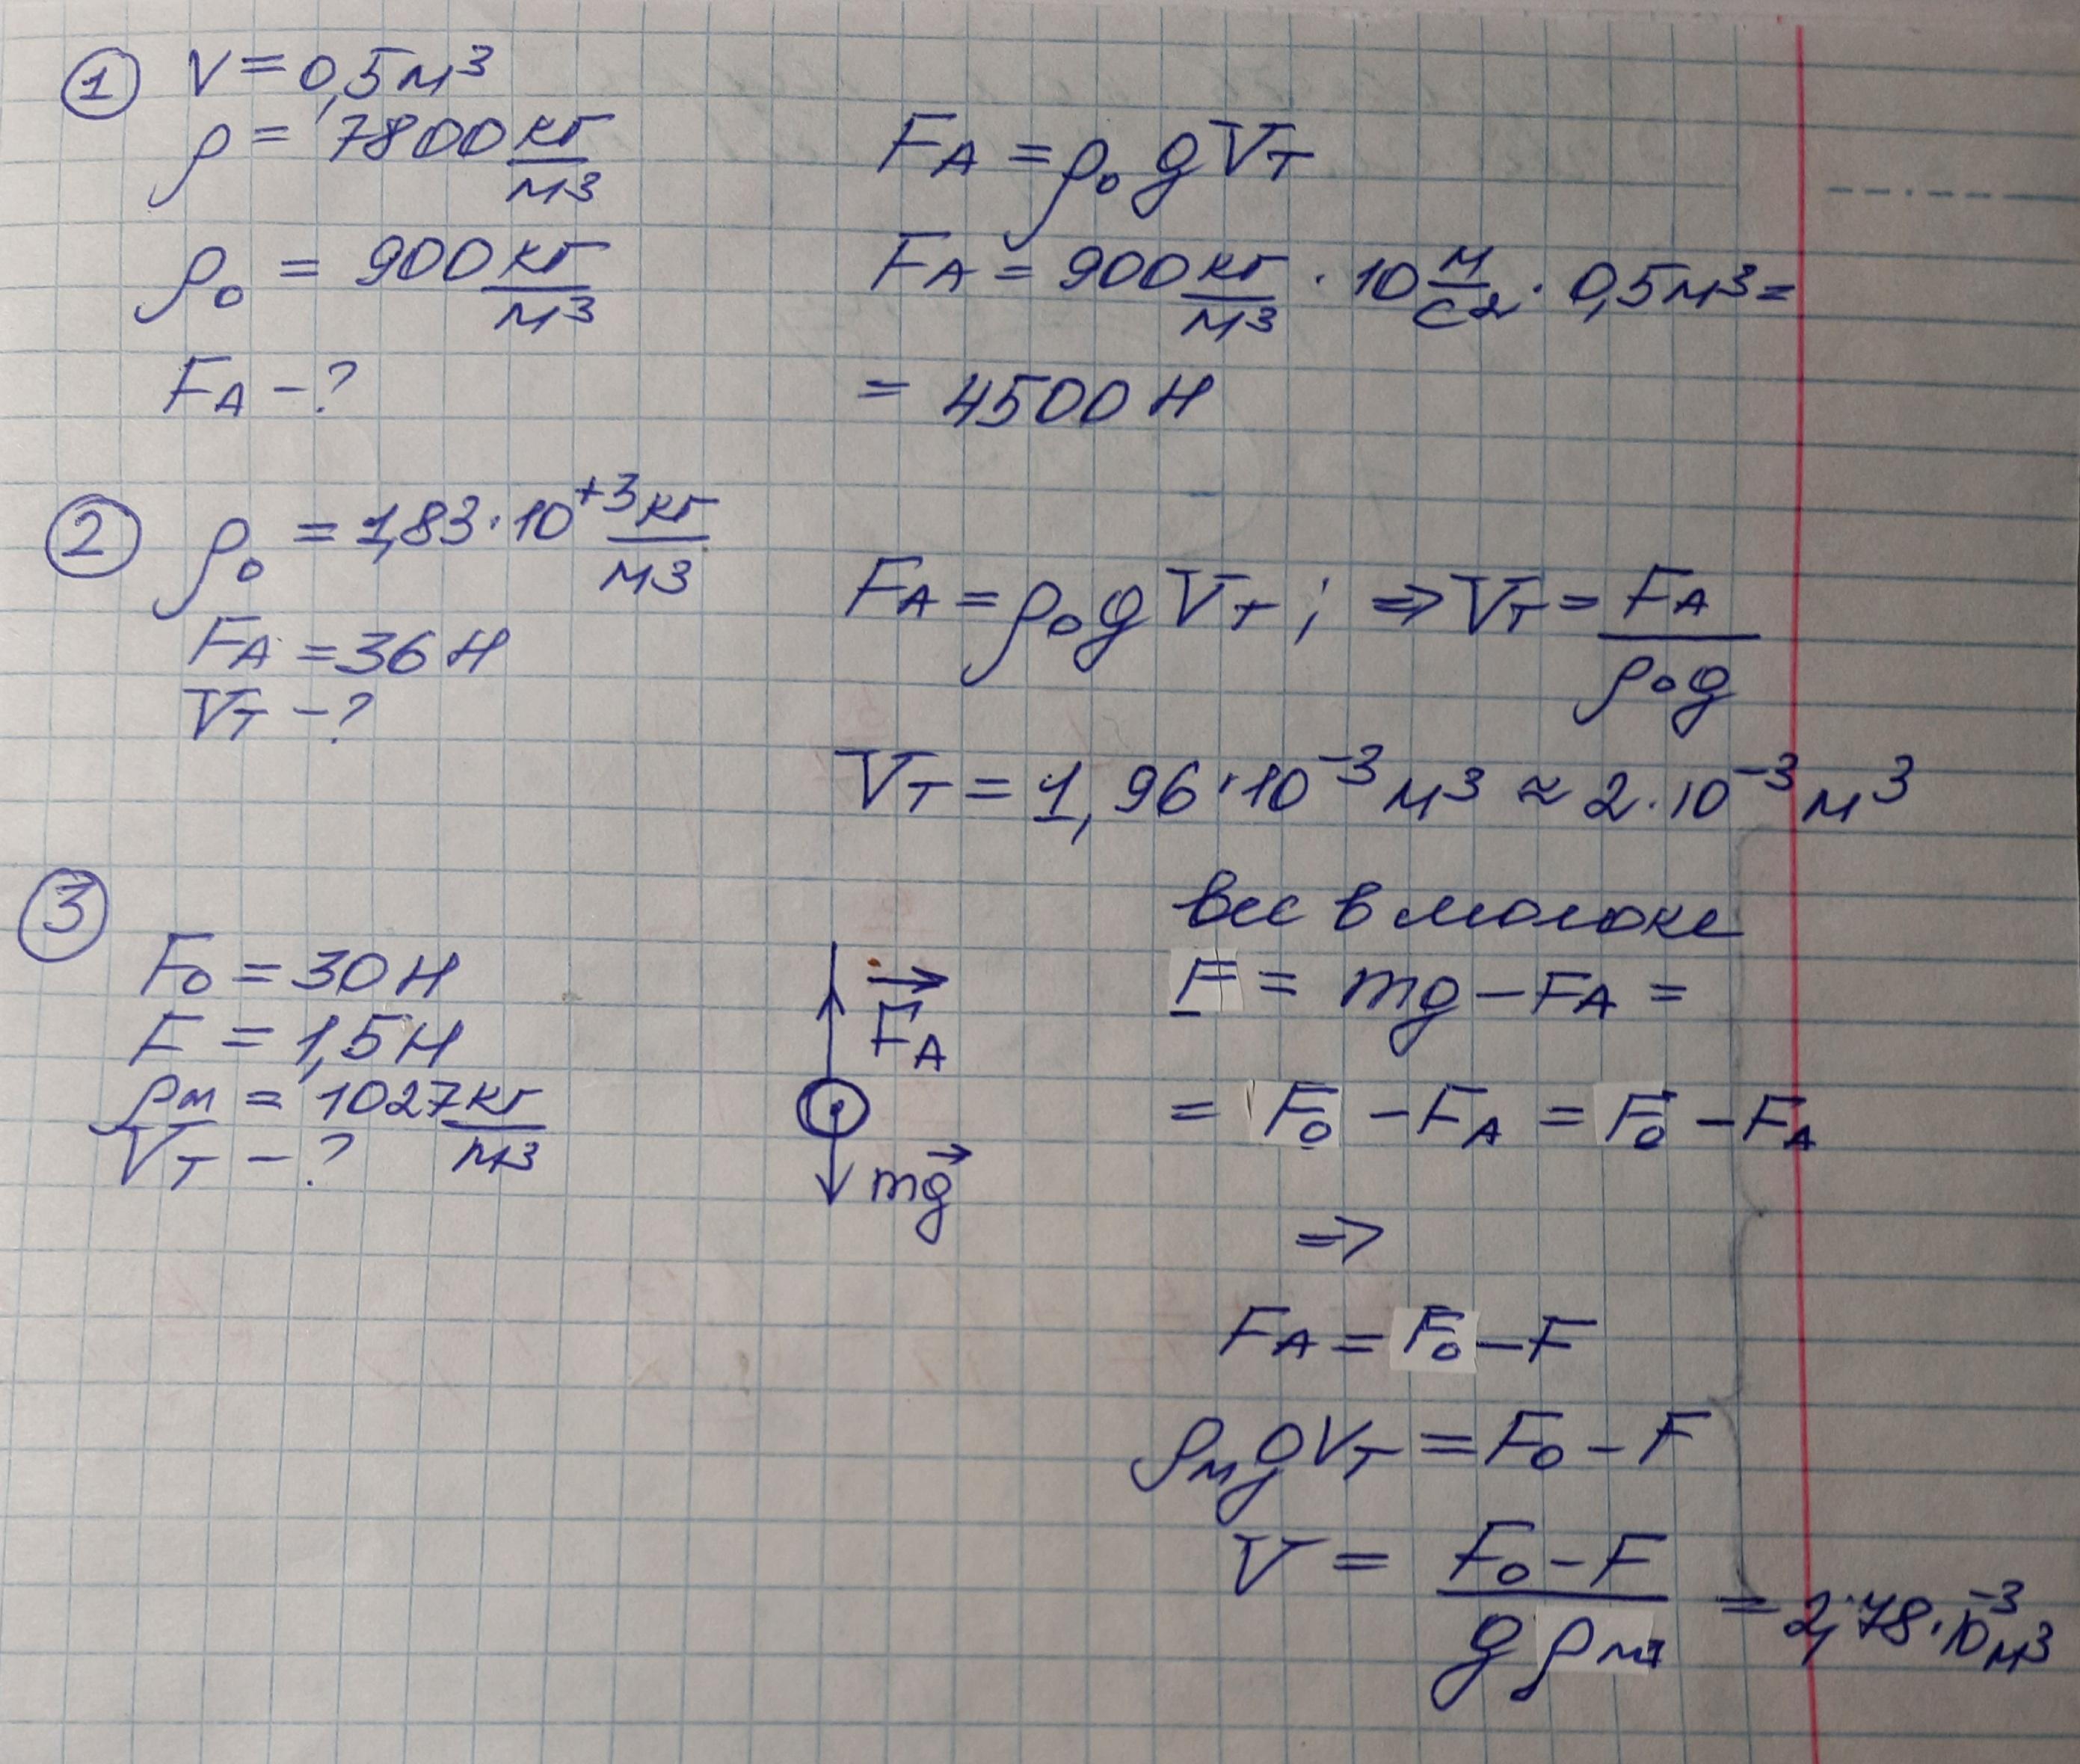 ① V = 0,5 м³
ρ = 7800 кг/м³
ρ₀ = 900 кг/м³
F_A – ?
F_A = ρ₀ g V_T
F_A = 900 кг/м³ · 10 м/с² · 0,5 м³ =
= 4500 Н
② ρ₀ = 1,83 · 10⁺³ кг/м³
F_A = 36 Н
V_T – ?
F_A = ρ₀ g V_T ; ⇒ V_T = F_A / ρ₀ g
V_T = 1,96 · 10⁻³ м³ ≈ 2 · 10⁻³ м³
③
F₀ = 30 Н
F = 1,5 Н
ρ_м = 1027 кг/м³
V_T – ?
F_A
mg
вес в молоке
F = mg – F_A =
= F₀ – F_A = F₀ – F_A
⇒
F_A = F₀ – F
ρ_м g V_T = F₀ – F
V = F₀ – F / g ρ_м = 2,78 · 10⁻³ м³